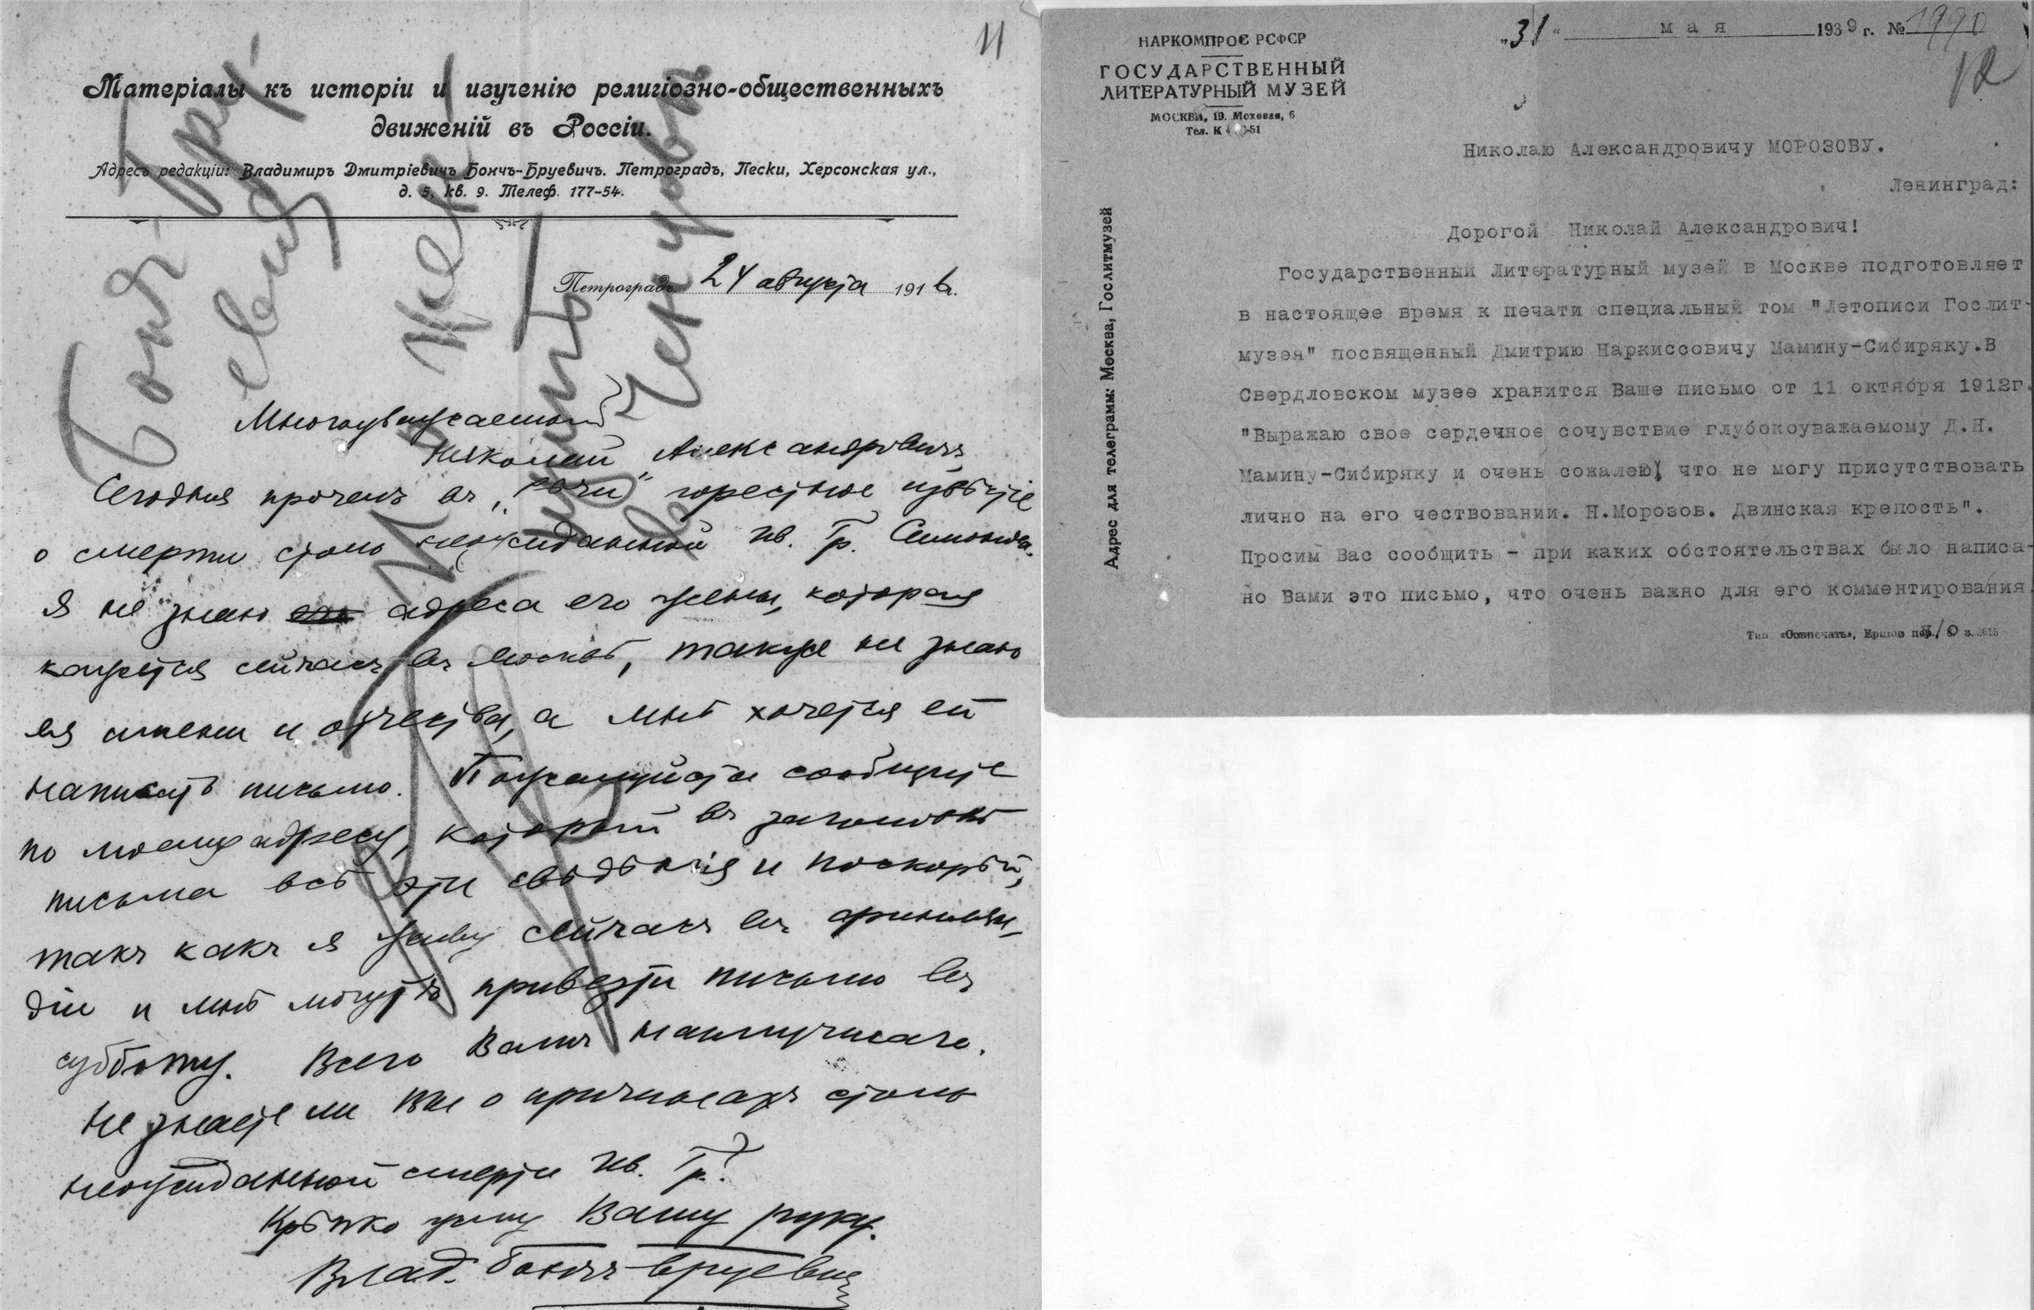 11
Матеріалы къ исторіи и изученію религіозно-общественныхъ
движеній въ Россіи.
Адресъ редакціи: Владимиръ Дмитріевичъ Бончъ-Бруевичъ. Петроградъ, Пески, Херсонская ул.,
д. 5, кв. 9. Телеф. 177-54.
Петроградъ, 24 августа 1916 г.
Многоуважаемый
Николай Александровичъ,
Сегодня прочелъ въ „Речи" горестное извѣстіе
о смерти столь неожиданной Ив. Гр.
Я не знаю адреса его жены, которая
кажется сейчасъ въ Москвѣ, также не знаю
ея имени и отчества, а мнѣ хочется ей
написать письмо. Пожалуйста сообщите
по моему адресу, который въ заголовкѣ
письма всѣ эти свѣдѣнія и поскорѣй,
такъ какъ я живу сейчасъ въ Финлян-
діи и мнѣ могутъ привезти письмо въ
субботу. Всего Вамъ наилучшаго.
Не знаете ли Вы о причинахъ столь
неожиданной смерти Ив. Гр.?
Крѣпко жму Вашу руку.
Влад. Бончъ-Бруевичъ
„31" мая 1939 г. № 1990
12
НАРКОМПРОС РСФСР
ГОСУДАРСТВЕННЫЙ
ЛИТЕРАТУРНЫЙ МУЗЕЙ
МОСКВА, 19. Моховая, 6
Тел. К 51
Адрес для телеграмм: Москва, Гослитмузей
Николаю Александровичу МОРОЗОВУ.
Ленинград:
Дорогой Николай Александрович!
Государственный Литературный музей в Москве подготовляет
в настоящее время к печати специальный том "Летописи Гослит-
музея" посвященный Дмитрию Наркиссовичу Мамину-Сибиряку. В
Свердловском музее хранится Ваше письмо от 11 октября 1912г.
"Выражаю свое сердечное сочувствие глубокоуважаемому Д.Н.
Мамину-Сибиряку и очень сожалею, что не могу присутствовать
лично на его чествовании. Н.Морозов. Двинская крепость".
Просим Вас сообщить - при каких обстоятельствах было написа-
но Вами это письмо, что очень важно для его комментирования.
н/о